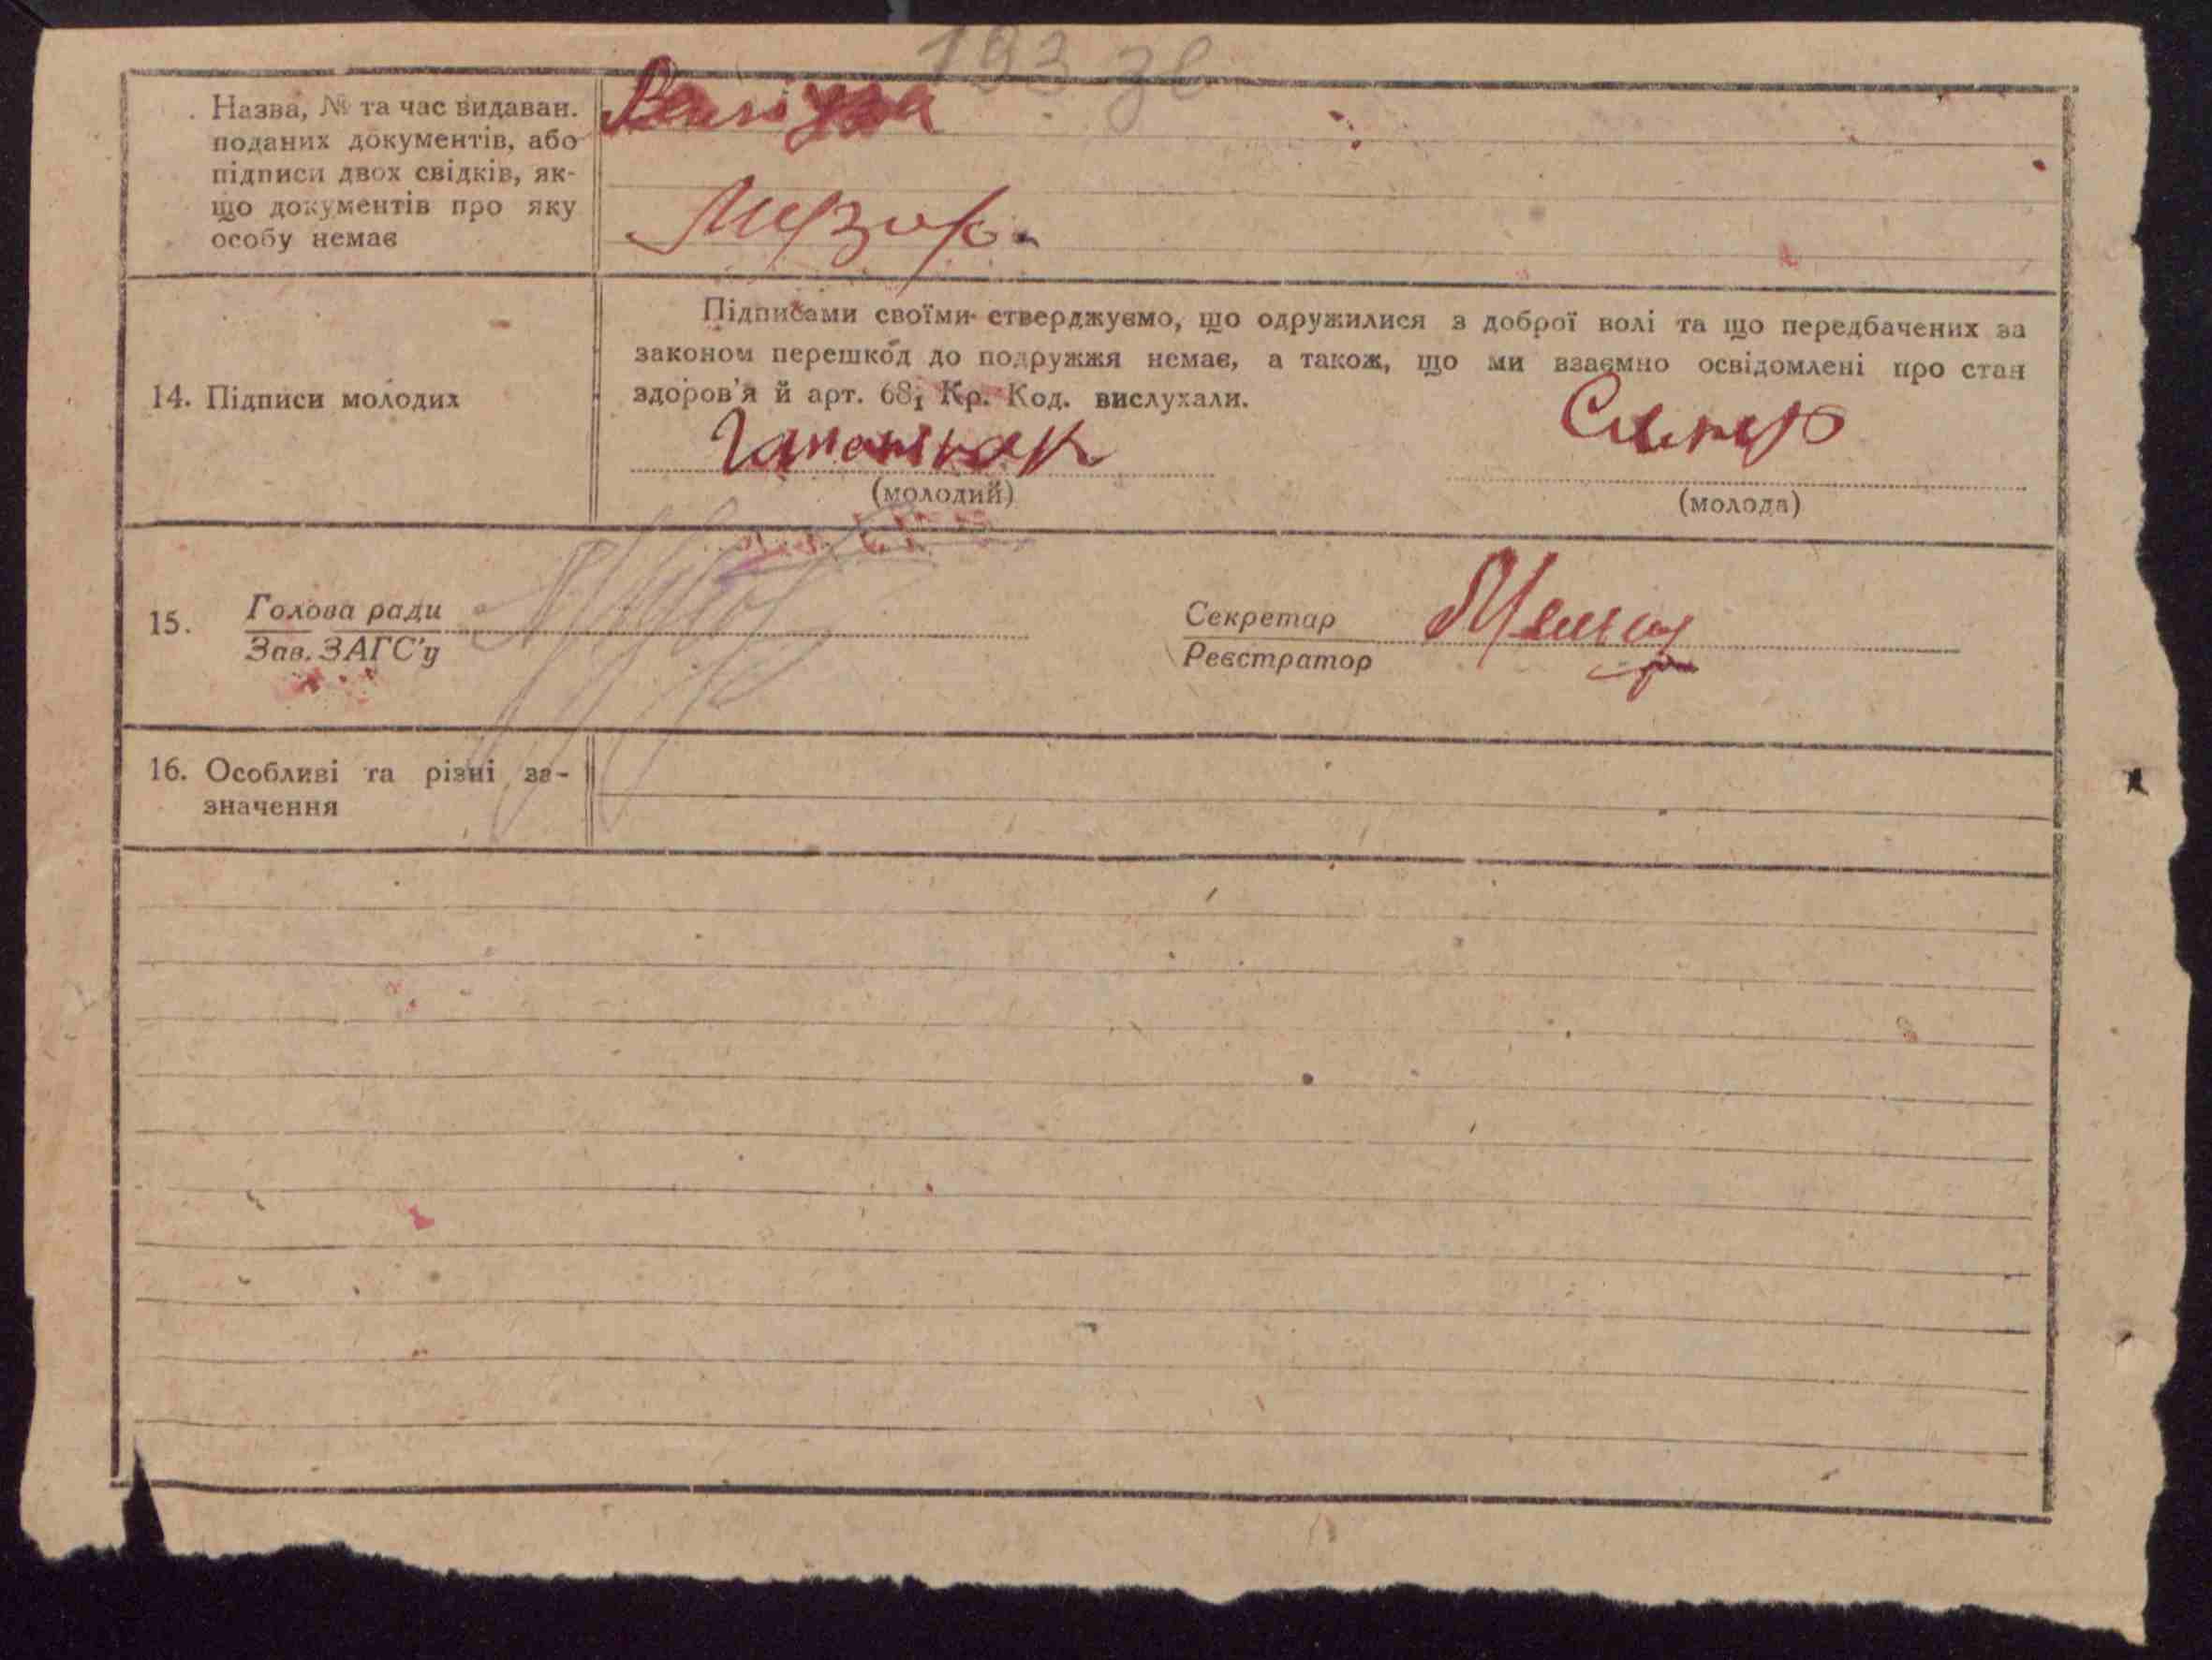 193 зв
Назва, № та час видаван.
поданих документів, або
підписи двох свідків, як-
що документів про яку
особу немає
Підписами своїми стверджуємо, що одружилися з доброї волі та що передбачених за
законом перешкод до подружжя немає, а також, що ми взаємно освідомлені про стан
здоров'я й арт. 68₁ Кр. Код. вислухали.
14. Підписи молодих
(молодий)
(молода)
15. Голова ради
Зав. ЗАГС'у
Секретар
Реєстратор
16. Особливі та різні за-
значення